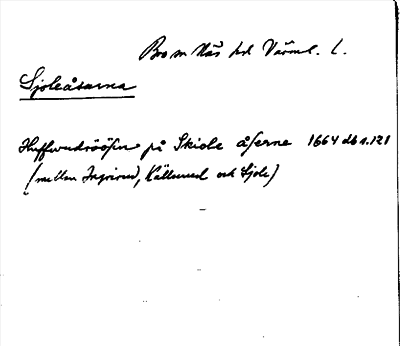 Bro sn Näs hd Värml. l.
Sjoleåsarna
Huffwudröösin på Skiole åserne 1664 db s. 121
(mellan Ingrirud, Källerud och Sjole)